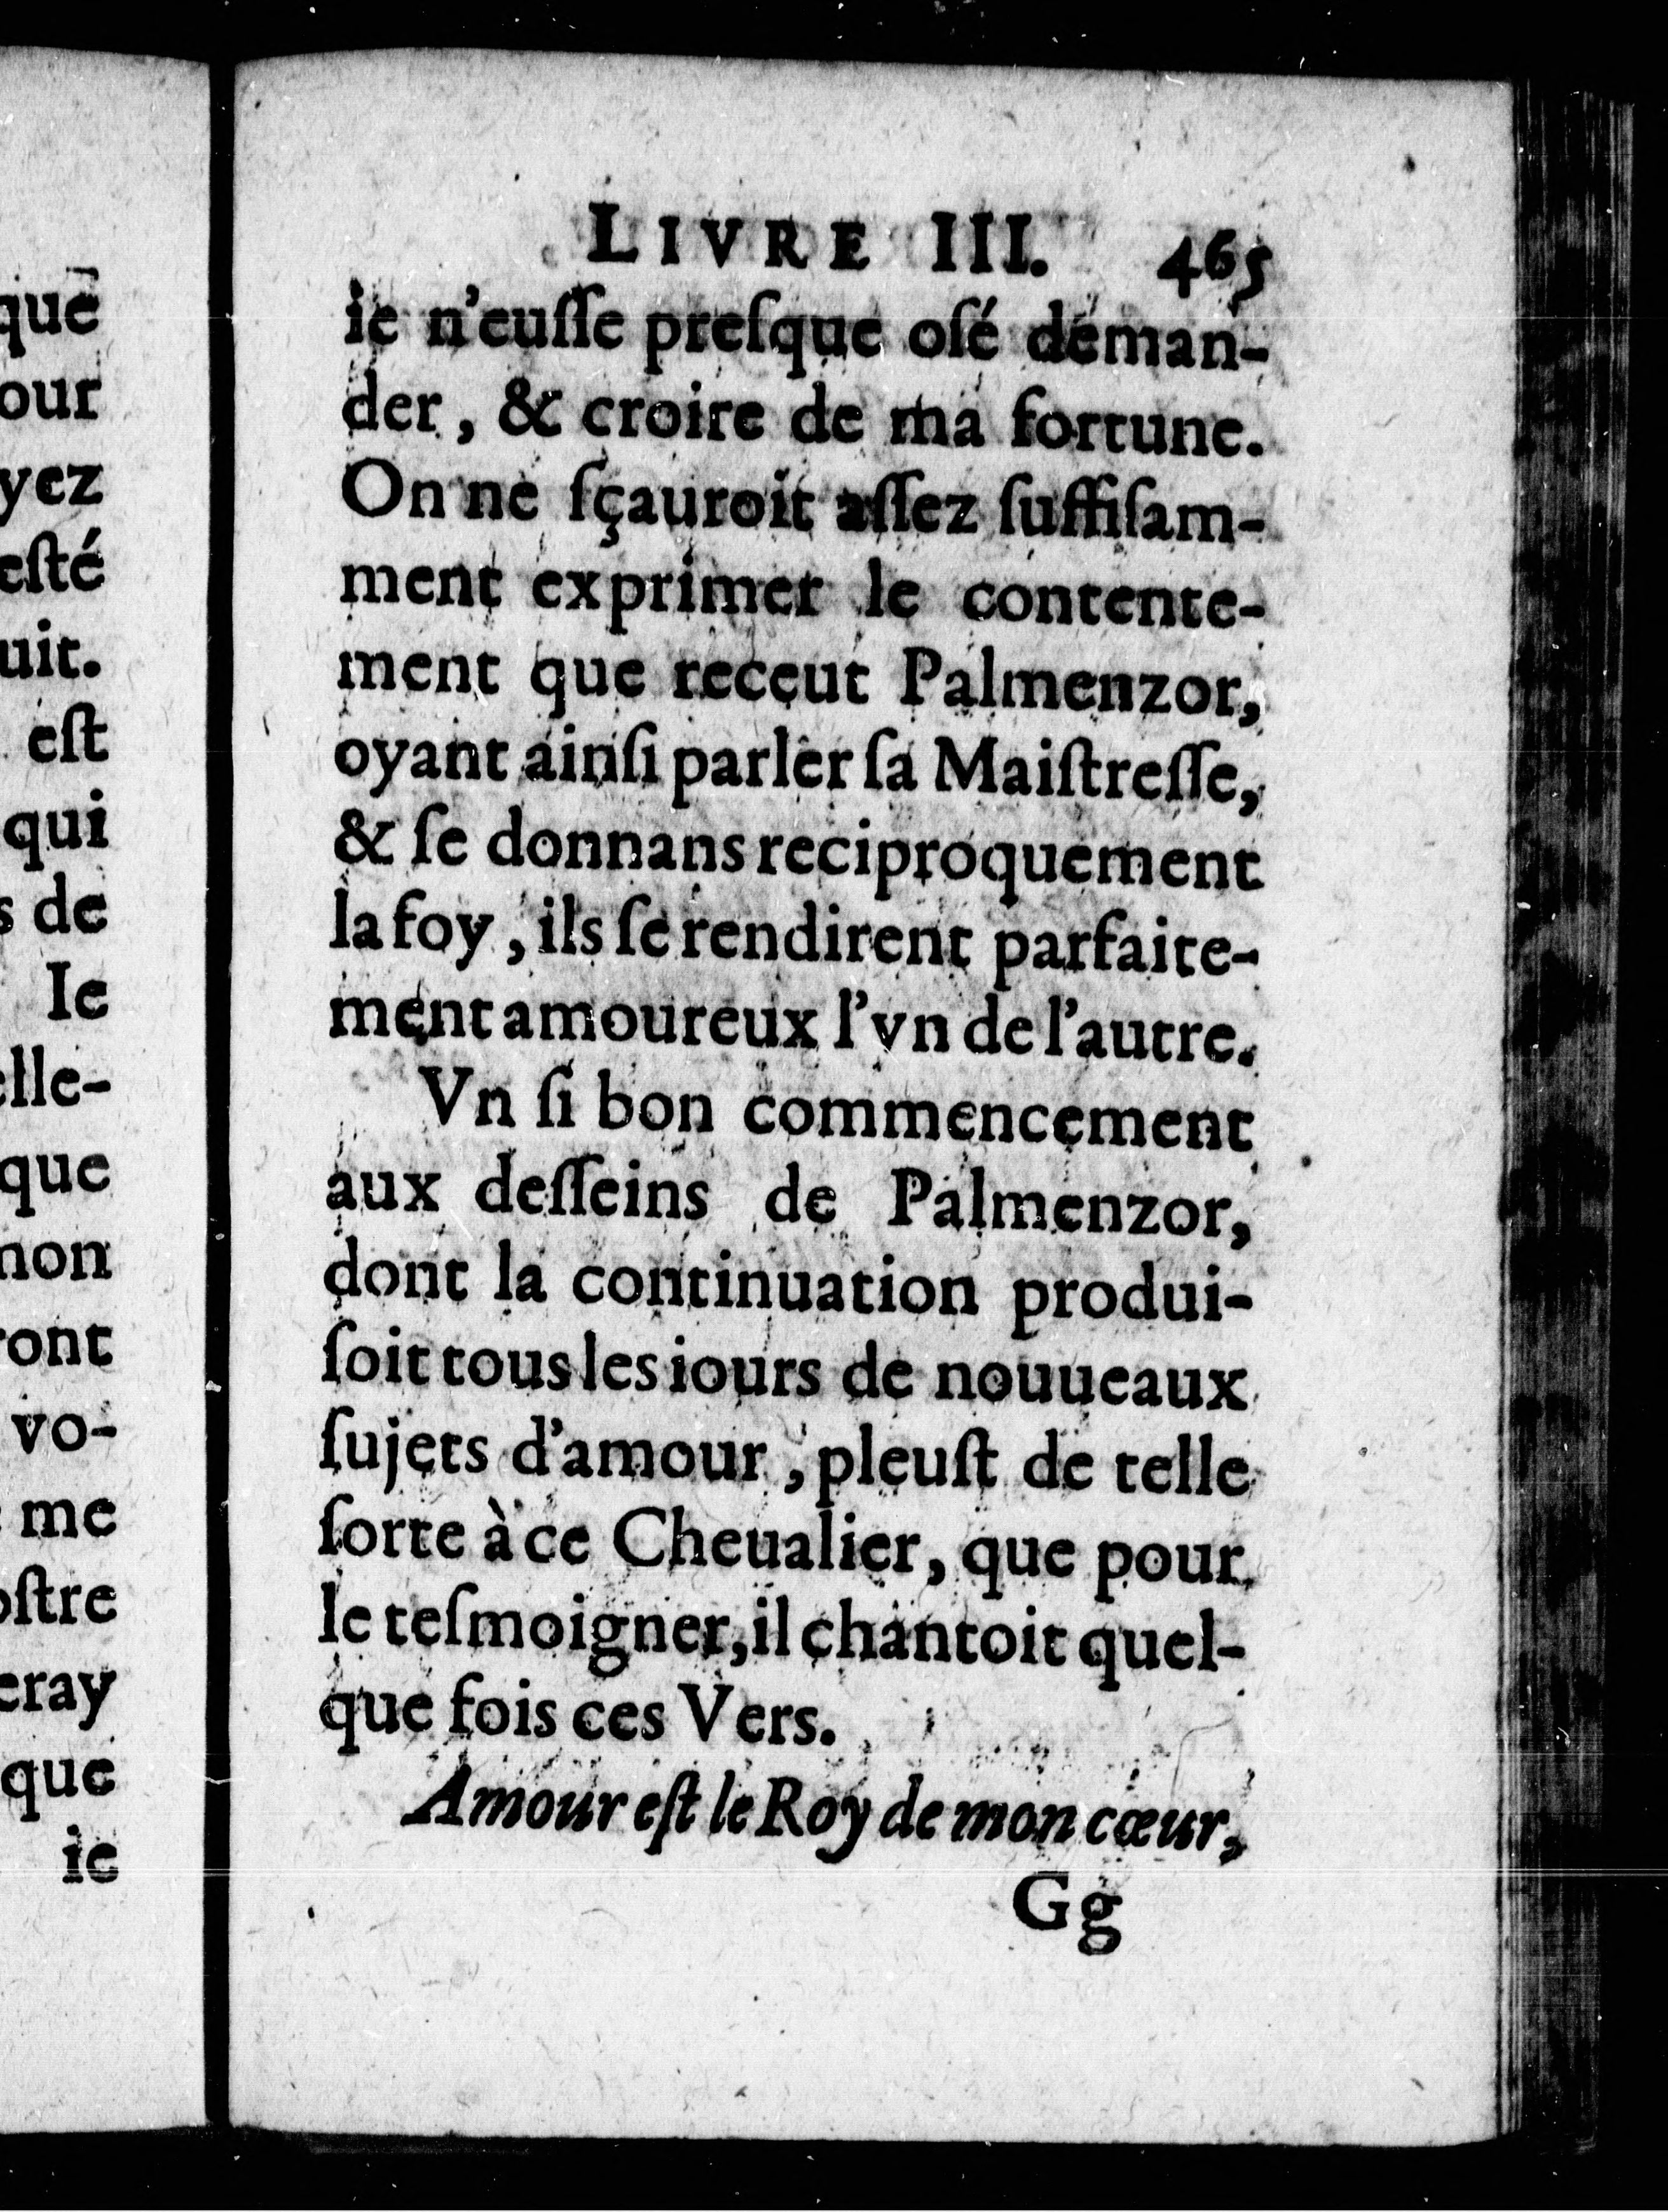 que
our
yez
esté
uit.
est
qui
s de
Ie
elle-
que
non
ront
vo-
me
ostre
eray
que
ie
LIVRE III. 465
ie n'euſſe preſque oſé deman-
der, & croire de ma fortune.
On ne ſçauroit aſſez ſuffiſam-
ment exprimer le contente-
ment que receut Palmenzor,
oyant ainſi parler ſa Maiſtreſſe,
& ſe donnans reciproquement
la foy, ils ſe rendirent parfaite-
ment amoureux l'vn de l'autre.
Vn ſi bon commencement
aux deſſeins de Palmenzor,
dont la continuation produi-
ſoit tous les iours de nouueaux
ſujets d'amour, pleuſt de telle
ſorte à ce Cheualier, que pour
le teſmoigner, il chantoit quel-
que fois ces Vers.
Amour eſt le Roy de mon cœur,
Gg